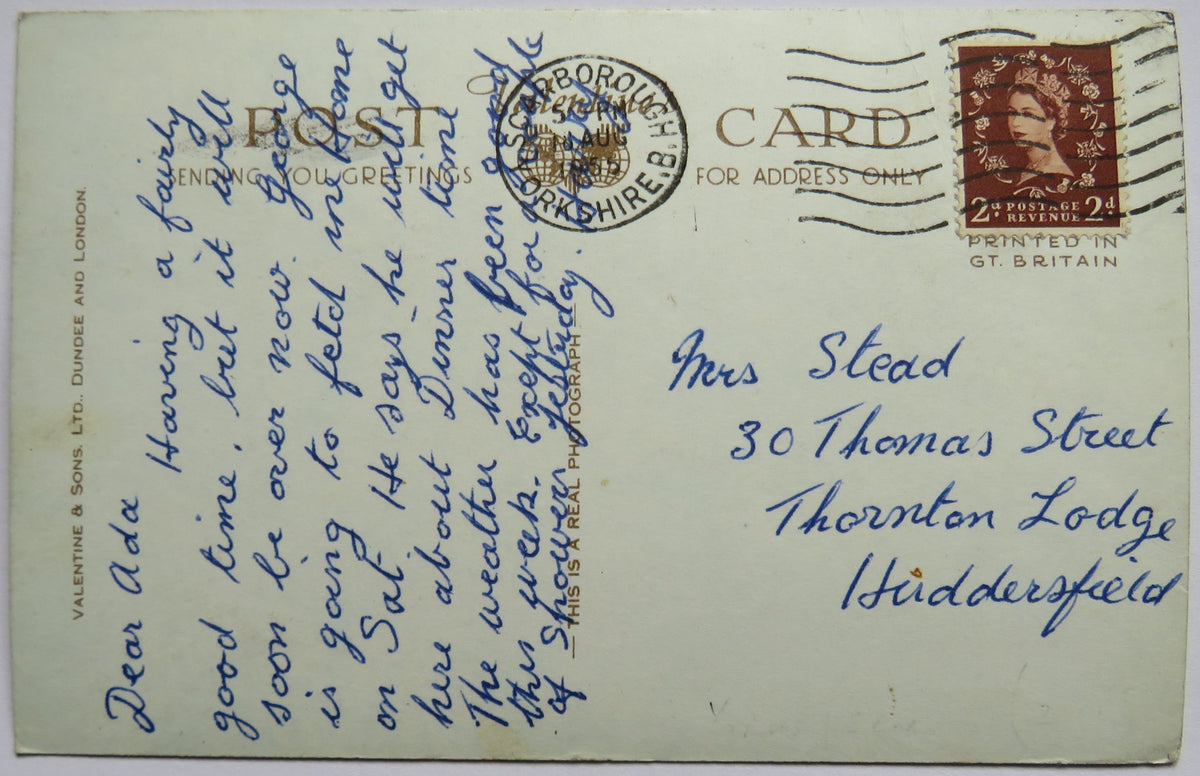 POST CARD
Valentine's
SENDING YOU GREETINGS
FOR ADDRESS ONLY
SCARBOROUGH
YORKSHIRE. B.
AUG
195
2d POSTAGE REVENUE 2d
PRINTED IN
GT. BRITAIN
VALENTINE & SONS, LTD., DUNDEE AND LONDON.
THIS IS A REAL PHOTOGRAPH
Dear Ada
Having a fairly
good time, but it will
soon be over now. George
is going to fetch me home
on Sat He says he will get
here about Dinner time
The weather has been good
this week. Exept for a couple
of Showers yesterday.
Mrs Stead
30 Thomas Street
Thornton Lodge
Huddersfield